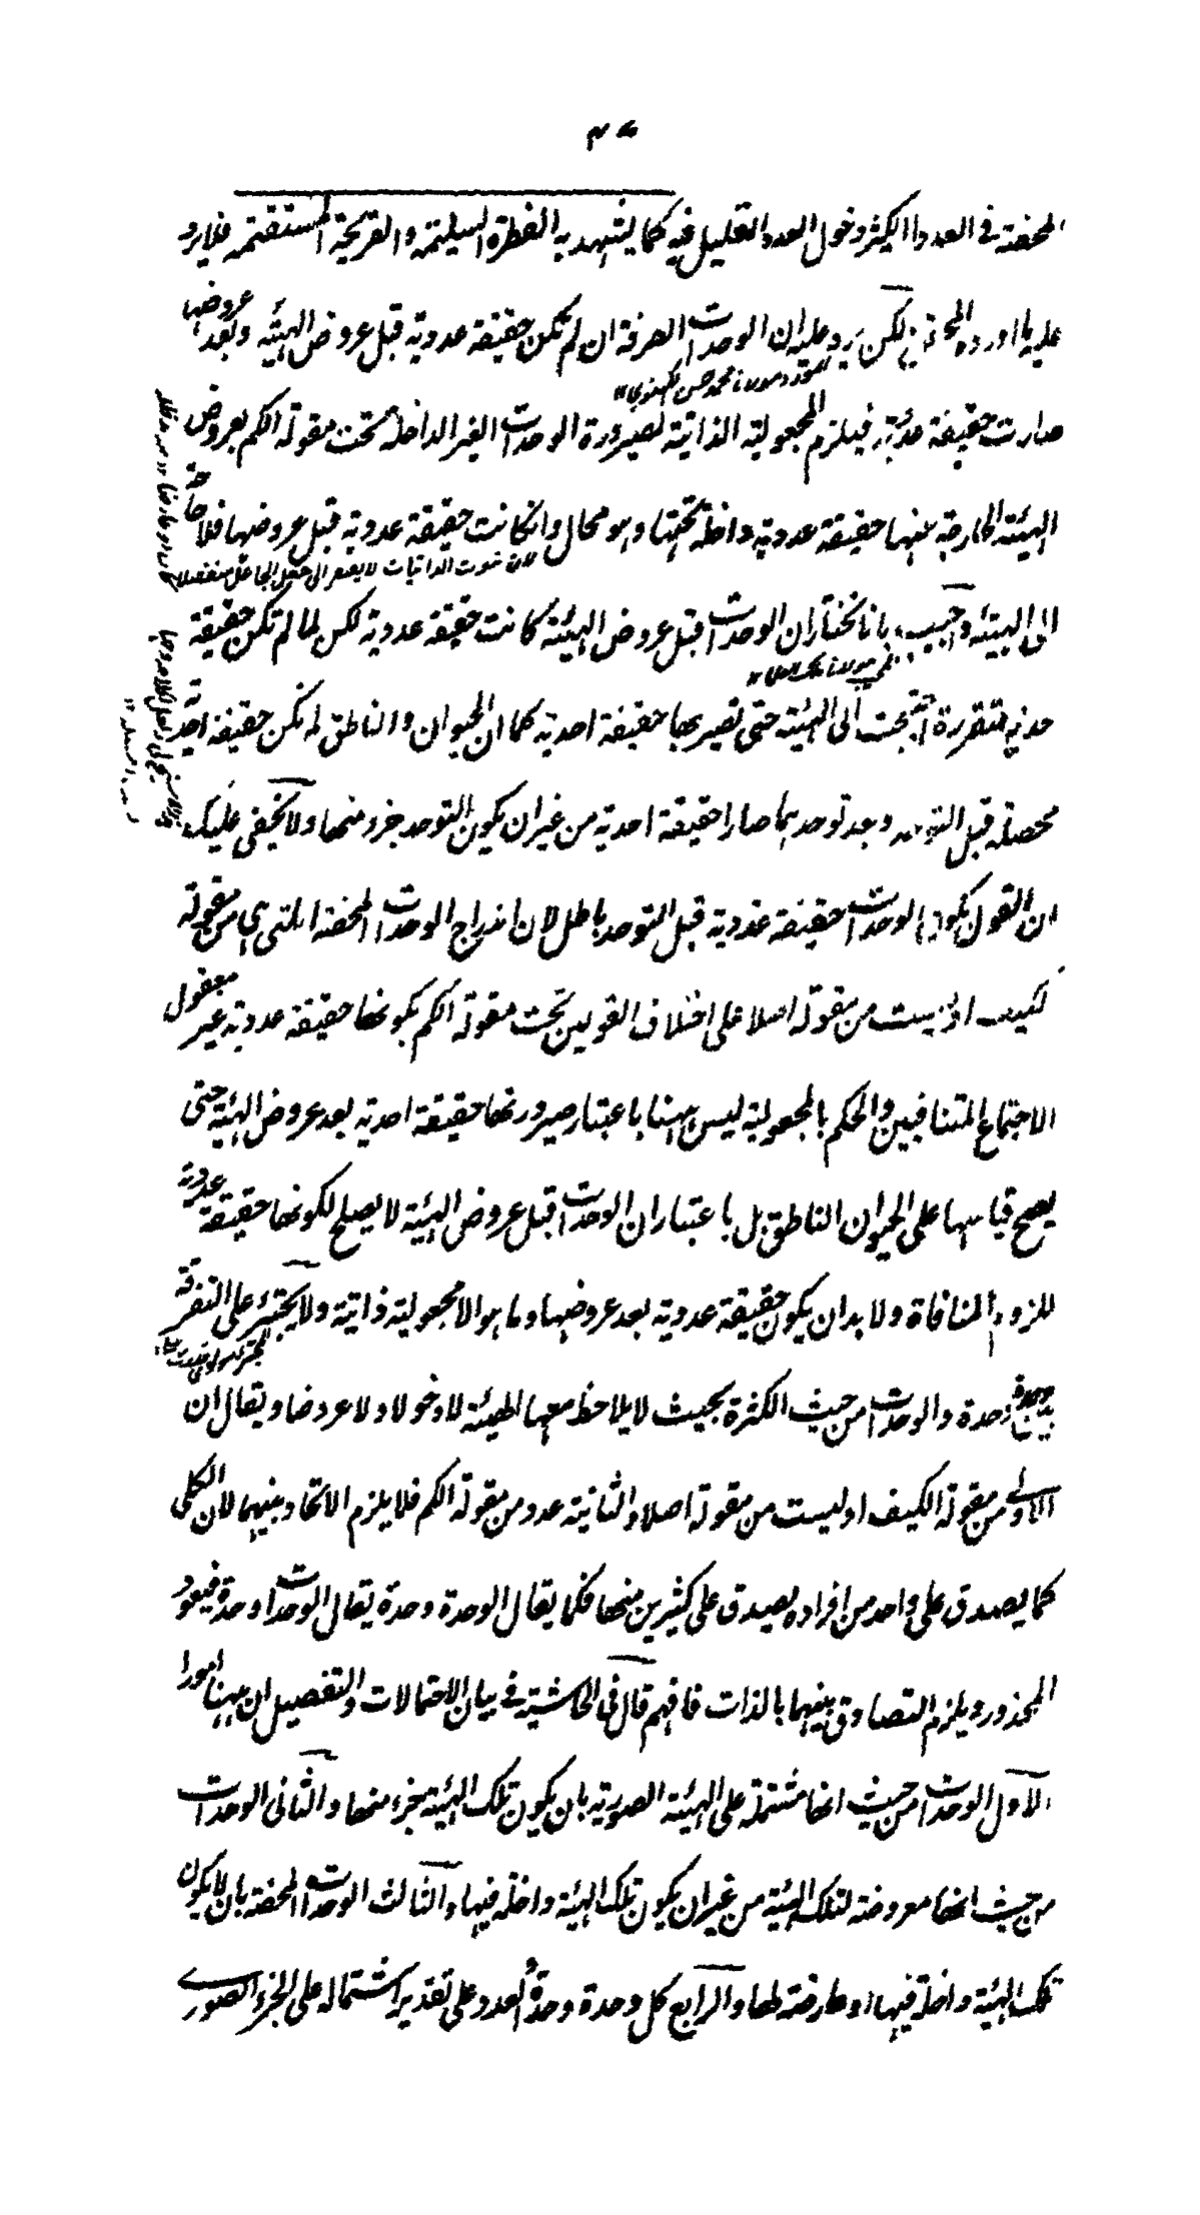 المحضة فى العدد الكثير دخول العدد القليل فيه كما يشهد به الفطرة السليمة والقريحة المستقيمة فلا يرد
عليه ما اورده المحقق لكن يرد عليه ان الوحدات الصرفة ان لم تكن حقيقة عددية قبل عروض الهيئة وبعد عروضها
المورد مولانا محمد حسن لكهنوى ١٢
صارت حقيقة عددية فيلزم المجعولية الذاتية لصيرورة الوحدات الغير الداخلة تحت مقولة الكم بعروض
الهيئة الخارجة عنها حقيقة عددية داخلة تحتها وهو محال وان كانت حقيقة عددية قبل عروضها فلا حاجة
لان ثبوت الذاتيات لا يفتقر الى جعل الجاعل
الى الهيئة واجيب بانا نختار ان الوحدات قبل عروض الهيئة كانت حقيقة عددية لكن لما لم تكن حقيقة
احدية متقررة احتيجت الى الهيئة حتى تصير بها حقيقة احدية كما ان الحيوان والناطق لم تكن حقيقة احدية
محصلة قبل التوحد وبعد توحدهما صارا حقيقة احدية من غير ان يكون التوحد جزء منها ولا يخفى عليك
ان القول بكون الوحدات حقيقة عددية قبل التوحد باطل لان اندراج الوحدات المحضة التى هى من مقولة
الكيف او ليست من مقولة اصلا على اختلاف القولين تحت مقولة الكم بكونها حقيقة عددية غير معقول
الاجتماع المتنافيين والحكم بالمجعولية ليس ههنا باعتبار صيرورتها حقيقة احدية بعد عروض الهيئة حتى
يصح قياسها على الحيوان الناطق بل باعتبار ان الوحدات قبل عروض الهيئة لا يصلح لكونها حقيقة عددية
للزوم المنافاة ولا بد ان يكون حقيقة عددية بعد عروضها وما هو الا مجعولية ذاتية ولا يجترئ على التفرقة
بين وحدة وحدة والوحدات من حيث الكثرة بحيث لا يلاحظ معها الهيئة لا دخولا ولا عروضا ويقال ان
الاولى من مقولة الكيف او ليست من مقولة اصلا والثانية عدد من مقولة الكم فلا يلزم الاتحاد بينهما لان الكلى
كما يصدق على واحد من افراده يصدق على كثيرين منها فكما يقال الوحدة وحدة يقال الوحدات وحدة فيعود
المحذور ويلزم التصادق بينهما بالذات فافهم قال فى الحاشية فى بيان الاحتمالات والتفصيل ان ههنا امورا
الاول الوحدات من حيث انها مشتملة على الهيئة الصورية بان يكون تلك الهيئة جزء منها والثانى الوحدات
من حيث انها معروضة لتلك الهيئة من غير ان يكون تلك الهيئة داخلة فيها والثالث الوحدات المحضة بان لا يكون
تلك الهيئة داخلة فيها او عارضة لها والرابع كل وحدة وحدة العدد على تقدير اشتماله على الجزء الصورى